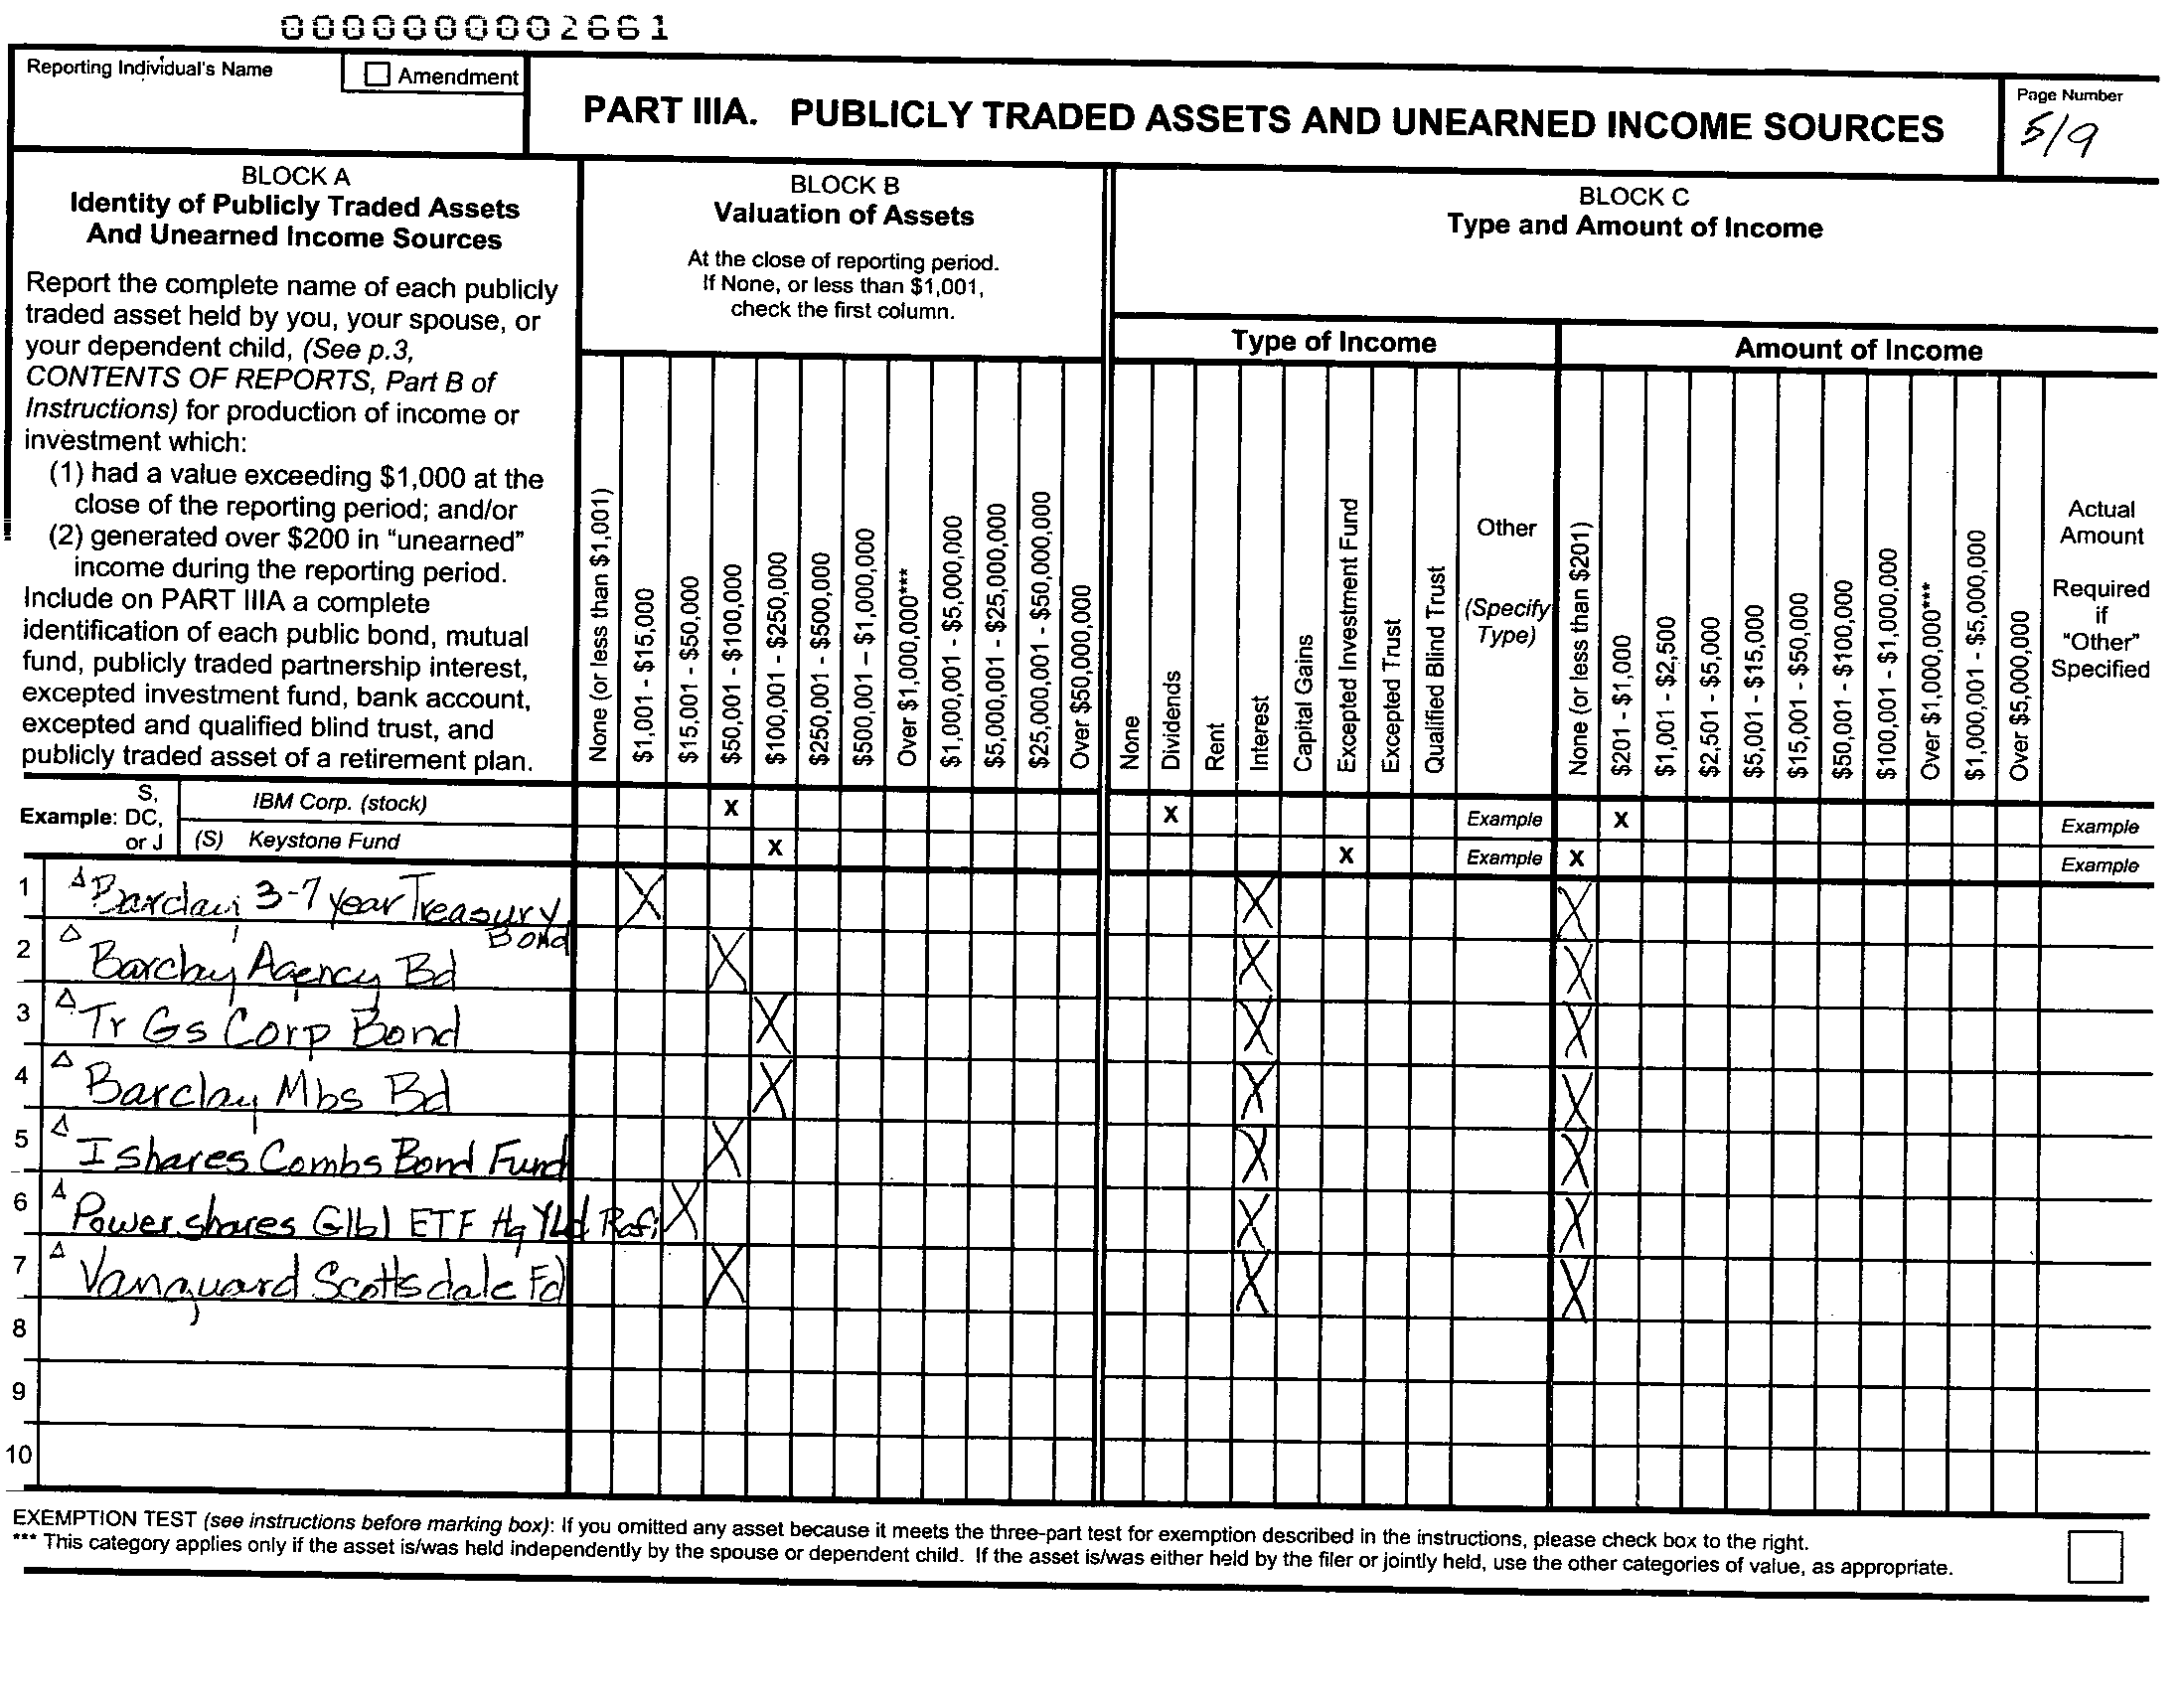 0000000002661
Reporting Individual's Name
Amendment
PART IIIA. PUBLICLY TRADED ASSETS AND UNEARNED INCOME SOURCES
Page Number
5/9
BLOCK A
Identity of Publicly Traded Assets
And Unearned Income Sources
Report the complete name of each publicly
traded asset held by you, your spouse, or
your dependent child, (See p.3,
CONTENTS OF REPORTS, Part B of
Instructions) for production of income or
investment which:
(1) had a value exceeding $1,000 at the
close of the reporting period; and/or
(2) generated over $200 in "unearned"
income during the reporting period.
Include on PART IIIA a complete
identification of each public bond, mutual
fund, publicly traded partnership interest,
excepted investment fund, bank account,
excepted and qualified blind trust, and
publicly traded asset of a retirement plan.
BLOCK B
Valuation of Assets
At the close of reporting period.
If None, or less than $1,001,
check the first column.
None (or less than $1,001)
$1,001 - $15,000
$15,001 - $50,000
$50,001 - $100,000
$100,001 - $250,000
$250,001 - $500,000
$500,001 – $1,000,000
Over $1,000,000***
$1,000,001 - $5,000,000
$5,000,001 - $25,000,000
$25,000,001 - $50,000,000
Over $50,000,000
BLOCK C
Type and Amount of Income
Type of Income
None
Dividends
Rent
Interest
Capital Gains
Excepted Investment Fund
Excepted Trust
Qualified Blind Trust
Other
(Specify
Type)
Amount of Income
None (or less than $201)
$201 - $1,000
$1,001 - $2,500
$2,501 - $5,000
$5,001 - $15,000
$15,001 - $50,000
$50,001 - $100,000
$100,001 - $1,000,000
Over $1,000,000***
$1,000,001 - $5,000,000
Over $5,000,000
Actual
Amount
Required
if
"Other"
Specified
Example: S, DC, or J
IBM Corp. (stock) X X Example X Example
(S) Keystone Fund X X Example X Example
1 Barclay 3-7 year Treasury Bond X X X
2 Barclay Agency Bd X X X
3 Tr Gs Corp Bond X X X
4 Barclay Mbs Bd X X X
5 I shares Cmbs Bond Fund X X X
6 Powershares Glbl ETF Hg Yld Rafi X X X
7 Vanguard Scottsdale Fd X X X
8
9
10
EXEMPTION TEST (see instructions before marking box): If you omitted any asset because it meets the three-part test for exemption described in the instructions, please check box to the right.
*** This category applies only if the asset is/was held independently by the spouse or dependent child. If the asset is/was either held by the filer or jointly held, use the other categories of value, as appropriate.